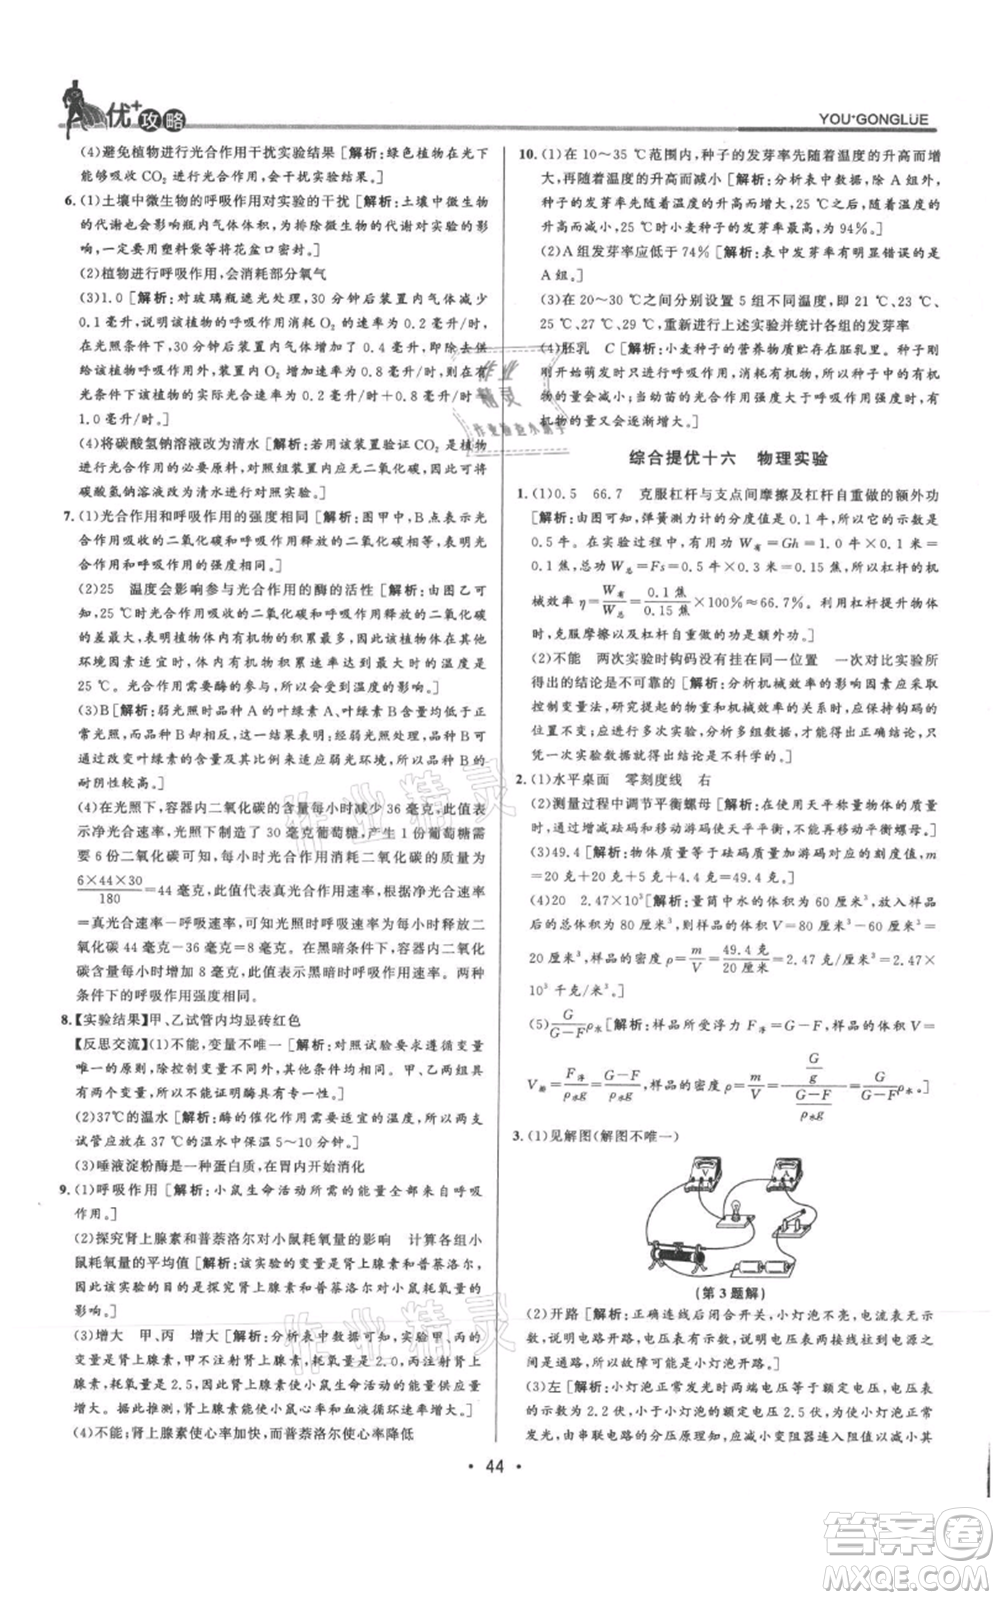 优+攻略
YOU+GONGLÜE
(4)避免植物进行光合作用干扰实验结果[解析:绿色植物在光下
能够吸收CO₂进行光合作用,影响实验结果。]
6.(1)土壤中微生物的呼吸作用对实验的干扰[解析:土壤中微生物
的代谢也会影响瓶内气体体积,为了减少微生物的代谢对实验的影
响,一定要用塑料袋将花盆口密封。]
(2)植物进行呼吸作用,会消耗部分氧气
(3)1.0[解析:对玻璃瓶遮光处理,30分钟后,红色液滴向左移动
0.1毫升,说明该植物的呼吸作用消耗O₂的速率为0.2毫升/时。
在光照条件下,30分钟后,红色液滴向右移动了0.4毫升,说明除供
给该植物呼吸作用外,该植物释放O₂的速率为0.8毫升/时,因此该
植物的实际光合速率是产生氧气0.2毫升/时+0.8毫升/时=1.0
毫升/时。]
(4)将碳酸氢钠溶液改为清水[解析:若用该装置验证CO₂是光合
作用的必要原料,则应设置有二氧化碳和无二氧化碳的对照,将碳酸
氢钠溶液改为清水即可。]
7.(1)光合作用和呼吸作用的强度相同[解析:图甲中,B点表示光
合作用吸收的二氧化碳和呼吸作用释放的二氧化碳的量相同,即两
者的强度相同。]
(2)25 温度会影响参与光合作用的酶的活性[解析:由图乙可
知,25℃时光合作用吸收的二氧化碳和呼吸作用释放的二氧化碳
差距最大,表明植物体内有机物的积累最多,因此植物体生长最快,
环境因素中的温度影响光合作用,在一定范围内,随着温度升高,光
合作用逐渐增强,当温度到达25℃时光合作用最强,之后温度超过
25℃,光合作用强度逐渐减弱。植物光合作用随温度变化而变化是
因为光合作用需要酶的参与,而酶的活性受温度的影响。]
(3)B[解析:弱光照时品种A的叶绿素含量、光合速率都比正常光
照下低,而品种B却相反,这一结果表明:经弱光照处理,该植物可通
过改变叶绿素含量来提高光合速率,以适应弱光环境,品种B的
耐阴性较强。]
(4)在光照下,容器内二氧化碳的含量每小时减少36毫克,此值代
表净光合速率,光照下制造了30毫克葡萄糖,产生1份葡萄糖需
要6份二氧化碳,可知每小时光合作用消耗二氧化碳的含量=
6×44×30/180=44毫克,此值代表真光合作用速率,根据净光合速率
=真光合速率-呼吸速率,可知光照时呼吸作用每小时释放二
氧化碳44毫克-36毫克=8毫克;在黑暗条件下,容器内二氧化
碳的含量每小时增加8毫克,该值表示黑暗时呼吸作用速率。两种
条件下的呼吸作用强度相同。
8.【实验结果】甲、乙试管内均显砖红色
【反思交流】(1)不能,变量不唯一[解析:对照实验要遵循变量唯
一的原则,除控制变量不同外,其他条件应都相同。甲、乙两组具有
两个变量,分别是温度和有无唾液淀粉酶,因此不能形成对照。]
(2)37℃的温水[解析:酶的催化作用需要适宜的温度,所以两支
试管应放入37℃的温水中保温5~10分钟。]
(3)唾液淀粉酶是一种蛋白质,在胃内开始消化
9.(1)呼吸作用[解析:小鼠生命活动所需的能量都来自呼吸
作用。]
(2)探究肾上腺素和普萘洛尔对小鼠耗氧量的影响 计算各组小
鼠耗氧量的平均值[解析:该实验的变量是有无肾上腺素和普萘洛
尔,因此探究的是肾上腺素和普萘洛尔对小鼠耗氧量的影响。]
(3)增大 甲、丙 增大[解析:分析表中数据可知,甲、丙的
变量是肾上腺素,注射肾上腺素的量是2.0,丙注射肾上腺
素的量是2.5,因此,肾上腺素能使小鼠的相对耗氧量
增大。据此推测,肾上腺素会使小鼠对氧的消耗量增大。]
(4)不能;肾上腺素使心率加快,而普萘洛尔使心率降低
10.(1)在10~35℃范围内,种子的发芽率先随着温度的升高而增
大,后随着温度的升高而减小[解析:分析表中数据,除A组外,
种子的发芽率随着温度的升高而增大,超过25℃后,随着温度的
升高而减小,25℃时小麦种子的发芽率最高,为94%。]
(2)A组发芽率应为74%[解析:表中发芽率有明显错误的是
A组。]
(3)在20~30℃之间分别设置5组不同温度,即21℃、23℃、
25℃、27℃、29℃,重新进行上述实验并统计各组的发芽率
(4)胚乳 C[解析:小麦种子的营养物质贮存在胚乳。种子刚
刚开始萌发时,会消耗有机物,但不能进行光合作用,所以有机物
的量会减少;当幼苗的光合作用大于呼吸作用时,有
机物的量又会增多。]
综合提优十六 物理实验
1.(1)0.5 66.7 克服杠杆与支点间摩擦及杠杆自重做的额外功
[解析:由图可知,弹簧测力计的分度值是0.1牛,所以其示数是
0.5牛。在实验过程中,有用功W有=Gh=1牛×0.1米=
0.1焦,总功W总=Fs=0.5牛×0.3米=0.15焦,所以杠杆的机
械效率η=W有/W总=0.1焦/0.15焦×100%≈66.7%。利用杠杆提升物体
时,克服摩擦以及杠杆自重做的功为额外功。]
(2)不能 两次实验时钩码没有挂在同一位置 一次对比实验获
得的结论是不可靠的[解析:分析机械效率的影响因素应采用
控制变量法,研究提起的物重和机械效率的关系时,应保持钩码的
位置不变,并应进行多次实验,分析多组数据,才能得出正确结论,
凭一次实验数据得出结论是不科学的。]
2.(1)水平桌面 零刻度线 右
(2)测量过程中调节平衡螺母[解析:在使用天平称量物体的质量
时,应通过增减砝码和移动游码使天平平衡,不能再调节平衡螺母。]
(3)49.4[解析:物体质量等于砝码质量加游码对应的刻度值,m=
20克+20克+5克+4.4克=49.4克。]
(4)20 2.47×10³[解析:量筒中水的体积为60厘米³,放入样品
后的总体积为80厘米³,则样品的体积V=80厘米³-60厘米³
=20厘米³,样品的密度ρ=m/V=49.4克/20厘米³=2.47克/厘米³=2.47×
10³千克/米³。]
(5)G/(G-F)ρ水[解析:样品所受浮力F浮=G-F,样品的体积V=
V排=F浮/ρ水g=(G-F)/ρ水g,样品的密度ρ=m/V=(G/g)/((G-F)/ρ水g)=G/(G-F)ρ水。]
3.(1)见解图(解图不唯一)
(第3题解)
(2)开路[解析:正确连线后闭合开关,小灯泡不亮,电流表无示
数,说明电路开路,电压表有示数,说明电压表两接线柱到电源之
间的电路是通路,因此可能是小灯泡开路。]
(3)左[解析:小灯泡正常发光时两端电压等于额定电压,电压表
示数为2.2伏,小于小灯泡的额定电压2.5伏,要使小灯泡正常
发光,由串联电路的分压原理可知,应减小滑动变阻器分压,减小其
·44·
作业精灵
作业检查小助手
作业精灵
作业精灵
答案圈
MXQE.COM